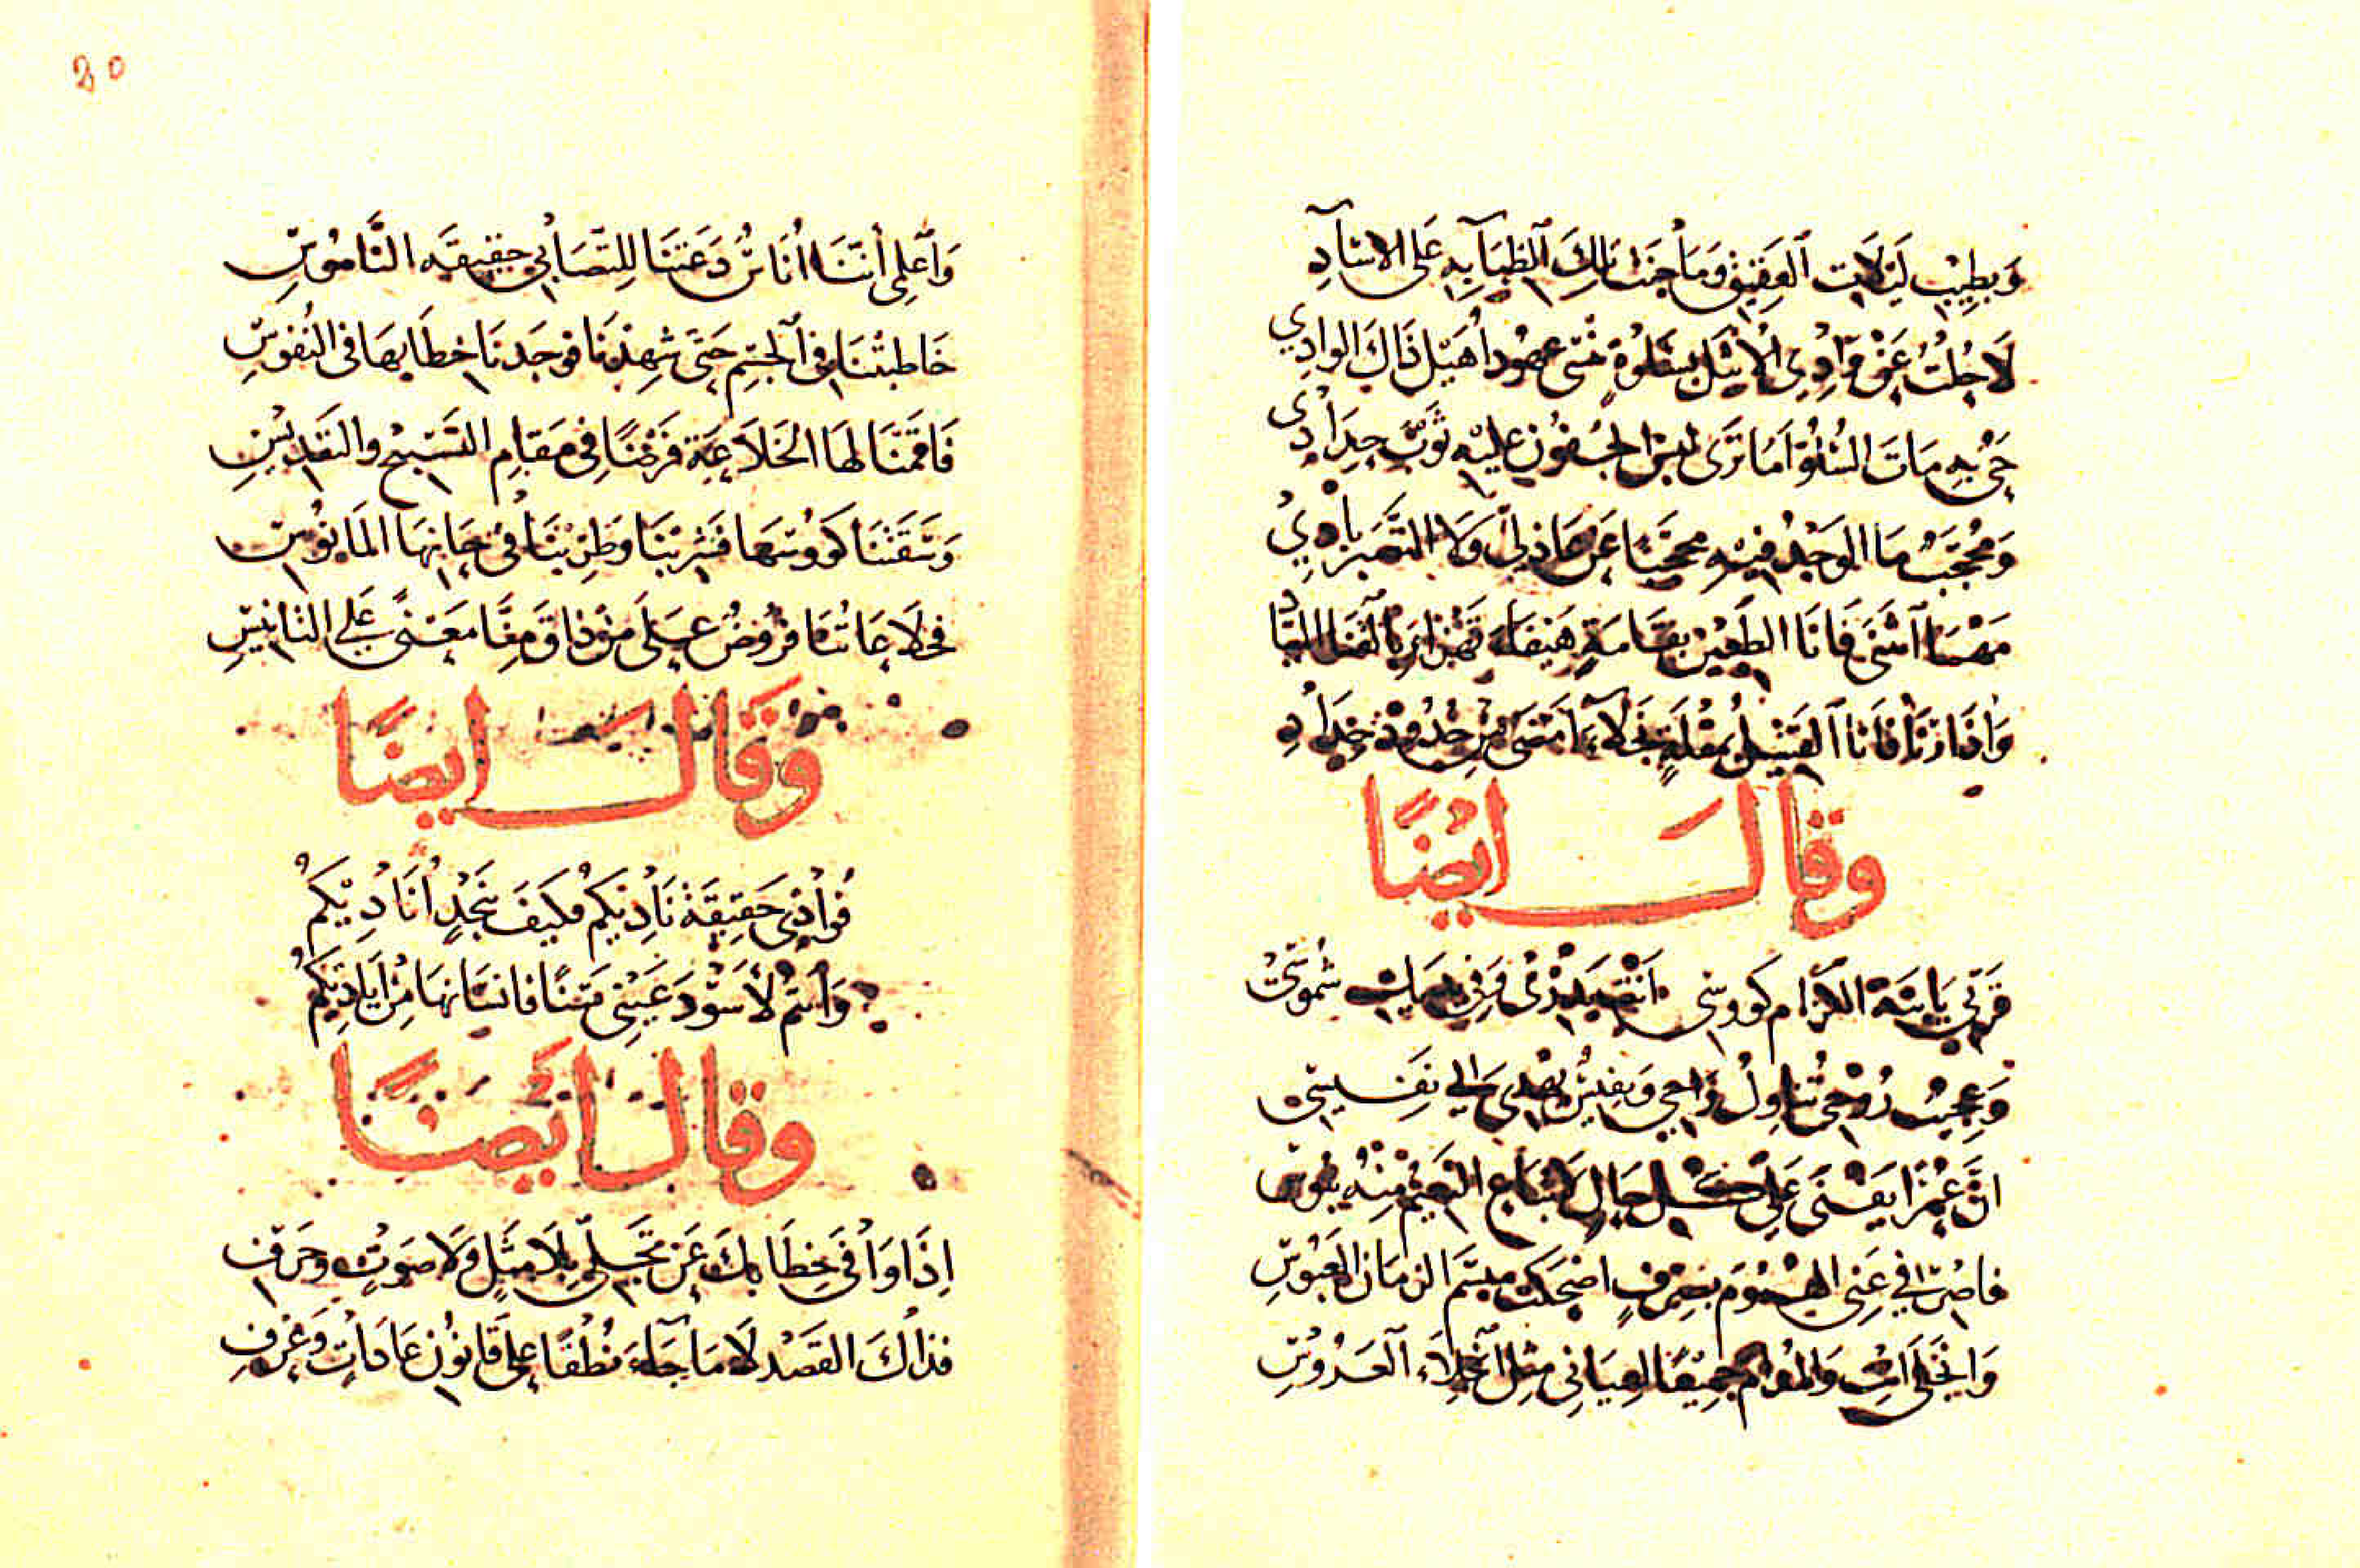 وَبِطِيبِ لَيْلَات العَقِيقِ وَمَا جَنَت تِلكَ الظِبَا بِهِ عَلى الاسَادِ
لَا حُلْتُ عَنْ وَادِي الأثلِ بِسَلوُةٍ عهُود أهَيْل ذَاكَ الوادِي
حَيّ بِهِ مَاتَ السُلُوّ أمَا تَرَى الجُفُونِ عليْه ثَوْبَ حِدَادِي
وَمُحجَّبٌ مَا الوَجْدُ فِيْهِ محجَّبًا عَن عَاذِلِي وَلَا
مَهْمَا آنثَنَى فَانَا الطَعِيْن بِقَامَةٍ هَيْفَاءَ بالقَنَا
وَاذَا رَنَا فَانَا القَتِيْلُ بمُقْلَةٍ نَجْلَآءَ امْضَى مِن حِدَادِ
وقال ايْضًا
قَرّبي يَا ابنَة الكرَام كووسِي شمُوسِي
وَعجِيبٌ رُوْحِي تُنَاوِلُ رَاحِي وَنفيْسٌ يُهْدى الى نَفيسِي
انَّ عُمْرًا يَفْنَى عَلى كُل حَالٍ النَعِيْم مِنْهُ ببُوسِ
فاصْرِفي عَنِى الهُمُومَ بصِرْفٍ اضْحَكت مبسَم الزمَان العَبُوسِ
جَمِيْعًا لعِيَانِي مِثل انجِلَاءِ العَرُوسِ
٤٥
وَاعلَمِى أنَّنَا أُنَاسٌ دَعَتنَا لِلتّصَابي حقِيقَه النَّامُوسِ
خَاطبتْنَا فِي الجِسْمِ حَتّى شهِدْنَا فوجَدنَا خِطَابهَا فى النُفوسِ
فَاقَمْنَا لهَا الخَلَاعَة فَرْضًا فِى مَقَام التَسْبِيح والتَقدِيْسِ
وَسَقتْنَا كووُسهَا فشرِبْنَا وَطرِبْنَا في حَانِهَا المَانُوسِ
فخلَاعَاتُنَا فرُوُضٌ عَلَى مَنْ ذاقَ مِنَّا مَعْنًى عَلى التانِيسِ
وَقَال ايضًا
فُوادِي حَقِيْقَة نَادِيْكُم فكَيفَ بنَجْدٍ أُنَادِيْكُمُ
وَأنتُمْ لأسْوَد عَيْنِى سَنًا فانسَانهَا مِنْ أيَادِيْكُمُ
وقال أيْضًا
اذَا وَافَى خِطَابكَ عَن تجَلّي بِلَا مِثلٍ وَلَا صَوْتٍ وحَرْفِ
فذاكَ القَصْد لَا مَا جَآءَ نُطْقًا عَلَى قَانُون عَادَاتٍ وَعُرْفِ